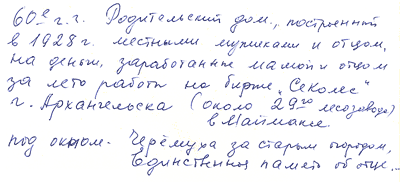 60е г.г. Родительский дом, построенный
в 1928г. местными мужиками и отцом,
на деньги, заработанные мамой и отцом
за лето работы на бирже „Севолес"
г. Архангельска (около 29го лесозавода)
в Маймаксе.
под окном. Черёмуха за старым огородом,
Единственная память об отце...